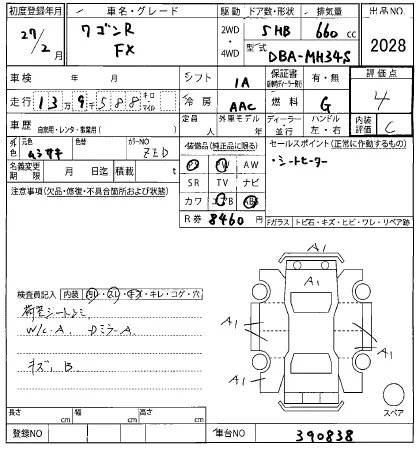 初度登録年月 車名・グレード 駆動 ドア数・形状 排気量 出品NO.
27/2月 ワゴンR FX 2WD・4WD 5HB 660cc 2028
型式 DBA-MH34S
車検 年 月 シフト 1A 保証書 有・無 評価点 4
走行 13万9千588 キロ マイル 冷房 AAC 燃料 G
車歴 自家用・レンタ・事業用( ) 定員 人 外車モデル 年 ディーラー・並行 ハンドル 左・右 内装評価 C
外色 元色 ムラサキ 色替 カラーNO ZED
装備品(純正品に限る) セールスポイント(正常に作動するもの)
・シートヒーター
名義変更期限 月 日迄 積載 t
PS PW AW
SR TV ナビ
カワ エアB ABS
R券 8460
注意事項(欠品・修復・不具合箇所および状態)
Fガラス トビ石・キズ・ヒビ・ワレ・リペア跡
A1
A1
A1
A1
A1
A1
検査員記入 内装 ヨゴレ・スレ・キズ・キレ・コゲ・穴
荷室シートシミ
W/C.A. DミラーA
キズ、B
スペア
長さ cm 幅 cm 高さ cm
登録NO 車台NO 390838